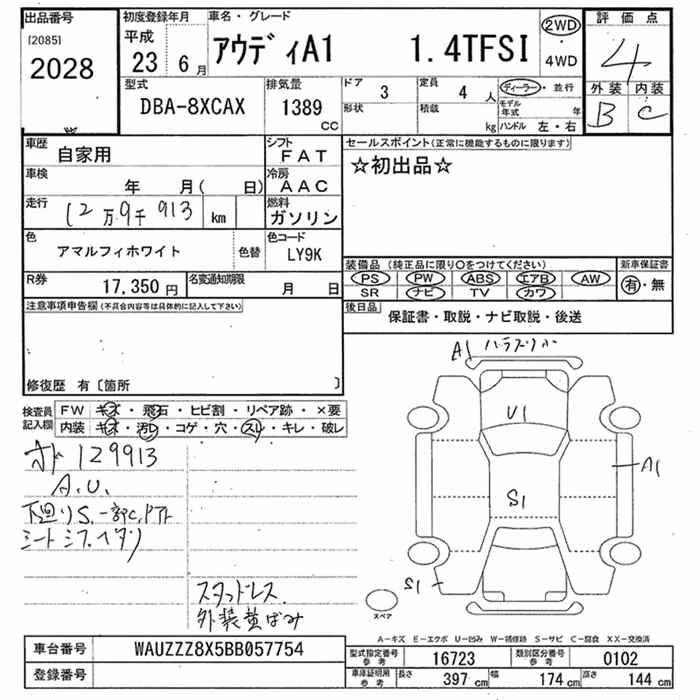 出品番号
[2085]
2028
初度登録年月
平成
23 6月
車名・グレード
アウディA1 1.4TFSI
2WD
・
4WD
評価点
4
外装 内装
B C
型式
DBA-8XCAX
排気量
1389
CC
ドア
3
形状
定員
4 人
積載
kg
ディーラー・並行
モデル
年式 年
ハンドル 左・右
車歴
自家用
シフト
FAT
車検
年 月( 日)
冷房
AAC
走行
12万9千913 km
燃料
ガソリン
色
アマルフィホワイト
色替
色コード
LY9K
R券
17,350 円
名変通知期限
月 日
セールスポイント(正常に機能するものに限ります)
☆初出品☆
装備品 (純正品に限り○をつけてください)
PS PW ABS エアB AW
SR ナビ TV カワ
新車保証書
有・無
後日品
保証書・取説・ナビ取説・後送
注意事項申告欄(不具合内容等は具体的に記入して下さい)
修復歴 有〔箇所 〕
検査員
記入欄
FW キズ・飛石・ヒビ割・リペア跡・×要
内装 キズ・汚レ・コゲ・穴・スレ・キレ・破レ
オド 129913
A.U.
下廻りS.一部C.
シート
スタッドレス
外装黄ばみ
A1
U1
A1
S1
S1
スペア
A−キズ E−エクボ U−凹み W−補修跡 S−サビ C−腐食 XX−交換済
車台番号
WAUZZZ8X5BB057754
登録番号
型式指定番号
参考
16723
類別区分番号
参考
0102
車庫証明用
参考
長さ 397 cm
幅 174 cm
高さ 144 cm